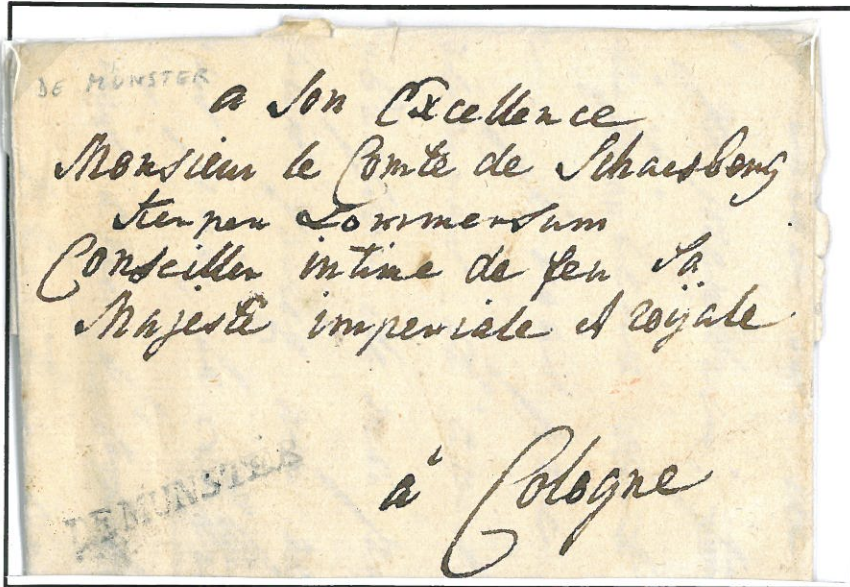 DE MÜNSTER
a Son Excellence
Monsieur le Comte de Schaesberg
Kerpen Lommersum
Conseiller intime de feu Sa
Majesté imperiale et roÿale
à Cologne
DE MUNSTER